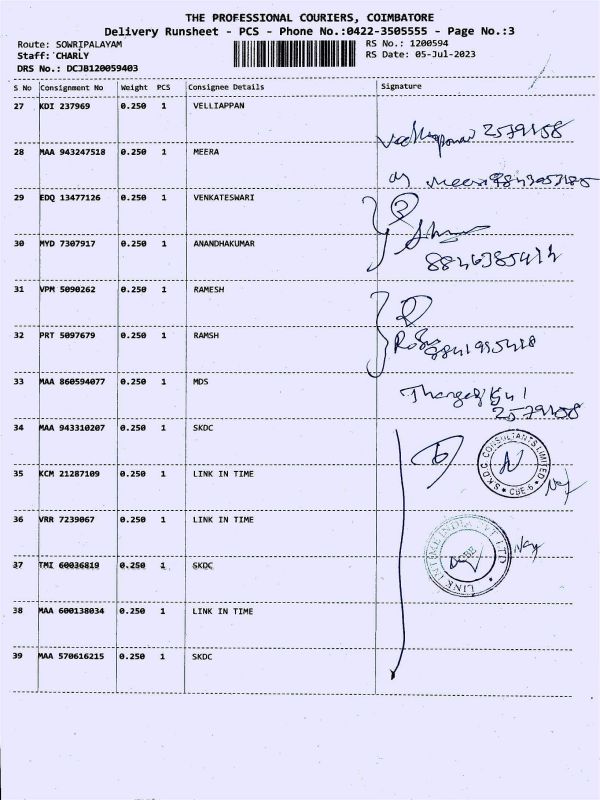 THE PROFESSIONAL COURIERS, COIMBATORE
Delivery Runsheet - PCS - Phone No.:0422-3505555 - Page No.:3
Route: SOWRIPALAYAM
RS No.: 1200594
Staff: CHARLY
RS Date: 05-Jul-2023
DRS No.: DCJB120059403
S No Consignment No Weight PCS Consignee Details Signature
27 KDI 237969 0.250 1 VELLIAPPAN
2579458
28 MAA 943247518 0.250 1 MEERA
Meera
29 EDQ 13477126 0.250 1 VENKATESWARI
30 MYD 7307917 0.250 1 ANANDHAKUMAR
31 VPM 5090262 0.250 1 RAMESH
32 PRT 5097679 0.250 1 RAMSH
33 MAA 860594077 0.250 1 MDS
2579458
34 MAA 943310207 0.250 1 SKDC
S.K.D.C. CONSULTANTS LIMITED
CBE-6
35 KCM 21287109 0.250 1 LINK IN TIME
36 VRR 7239067 0.250 1 LINK IN TIME
LINK INTIME INDIA PVT LTD
CBE
37 TMI 60036819 0.250 1 SKDC
38 MAA 600138034 0.250 1 LINK IN TIME
39 MAA 570616215 0.250 1 SKDC